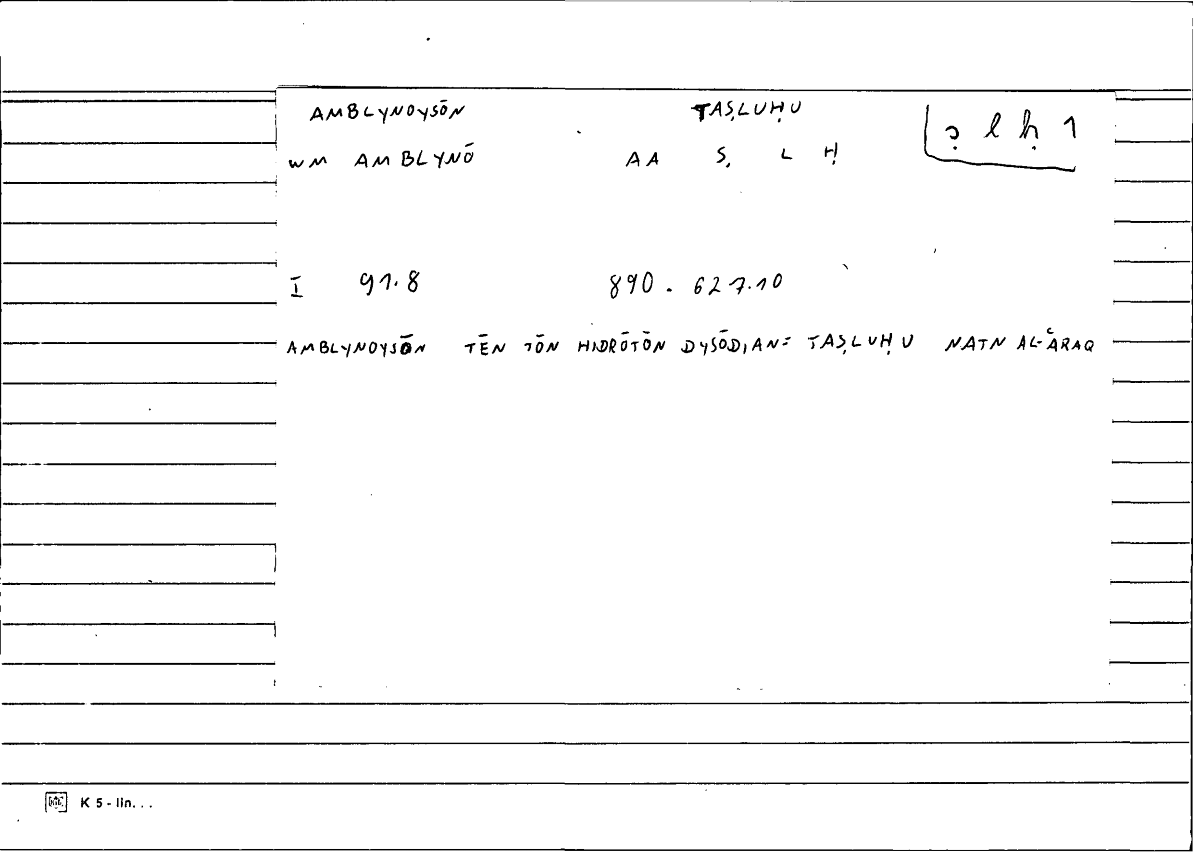 AMBLYNOYSŌN TAṢLUḤU ṣ l ḥ 1
WM AMBLYNŌ AA Ṣ L Ḥ
I 91.8 890. 627.10
AMBLYNOYSŌN TĒN TŌN HIDRŌTŌN DYSŌDIAN: TAṢLUḤU NATN AL-ʿARAQ
K 5 - lin. . .